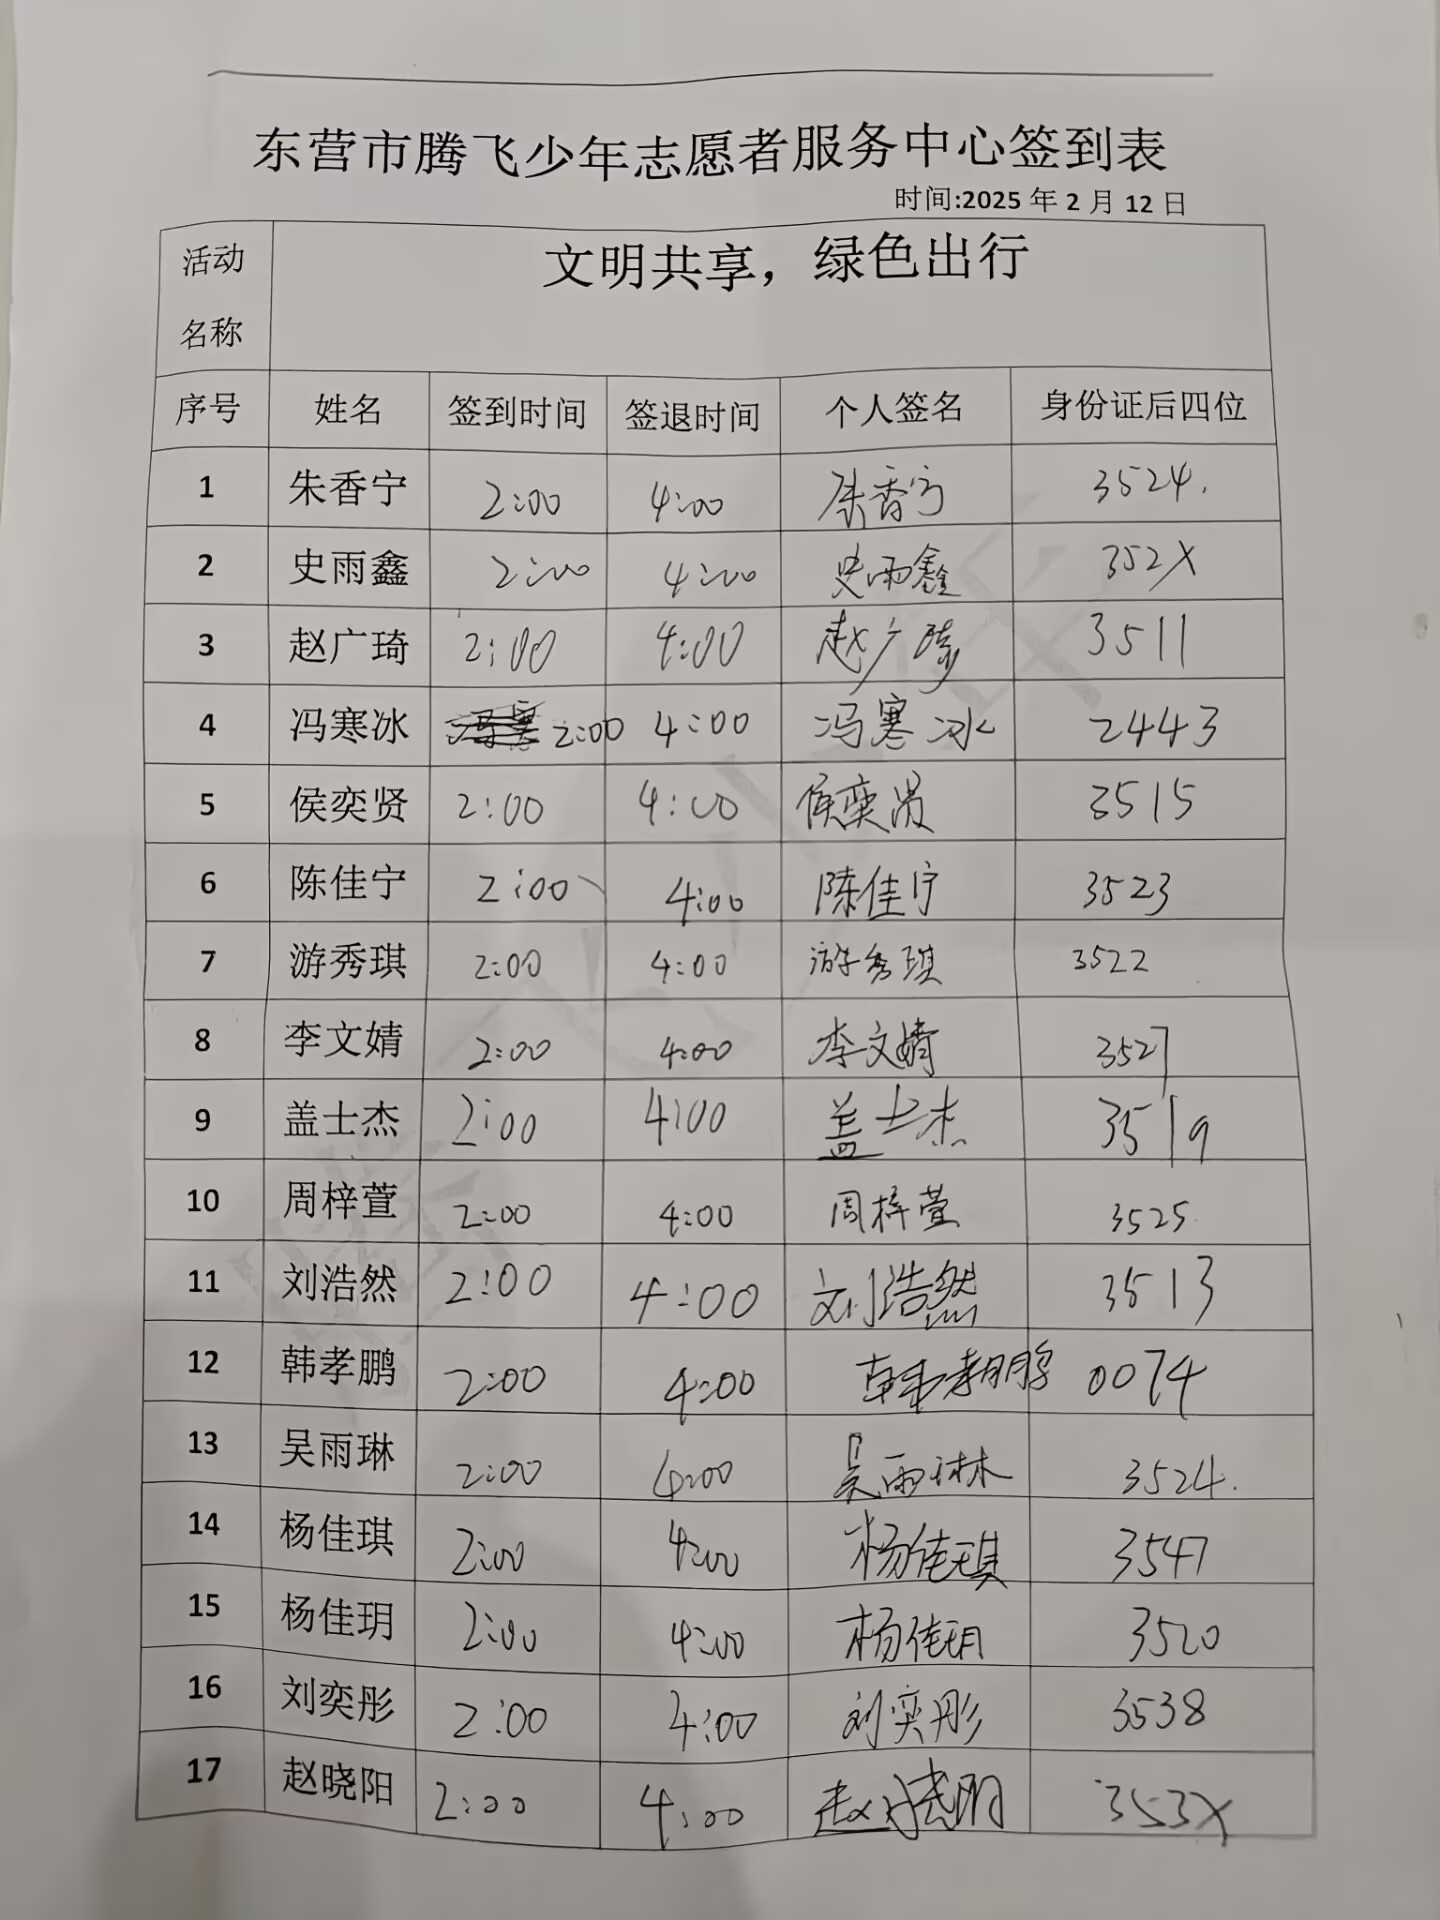 东营市腾飞少年志愿者服务中心签到表
时间:2025 年 2 月 12 日
活动名称 文明共享，绿色出行
序号 姓名 签到时间 签退时间 个人签名 身份证后四位
1 朱香宁 2:00 4:00 朱香宁 3524.
2 史雨鑫 2:00 4:00 史雨鑫 352X
3 赵广琦 2:00 4:00 赵广琦 3511
4 冯寒冰 2:00 4:00 冯寒冰 2443
5 侯奕贤 2:00 4:00 侯奕贤 3515
6 陈佳宁 2:00 4:00 陈佳宁 3523
7 游秀琪 2:00 4:00 游秀琪 3522
8 李文婧 2:00 4:00 李文婧 3527
9 盖士杰 2:00 4:00 盖士杰 3519
10 周梓萱 2:00 4:00 周梓萱 3525
11 刘浩然 2:00 4:00 刘浩然 3513
12 韩孝鹏 2:00 4:00 韩孝鹏 0074
13 吴雨琳 2:00 4:00 吴雨琳 3524.
14 杨佳琪 2:00 4:00 杨佳琪 3547
15 杨佳玥 2:00 4:00 杨佳玥 3520
16 刘奕彤 2:00 4:00 刘奕彤 3538
17 赵晓阳 2:00 4:00 赵晓阳 353X